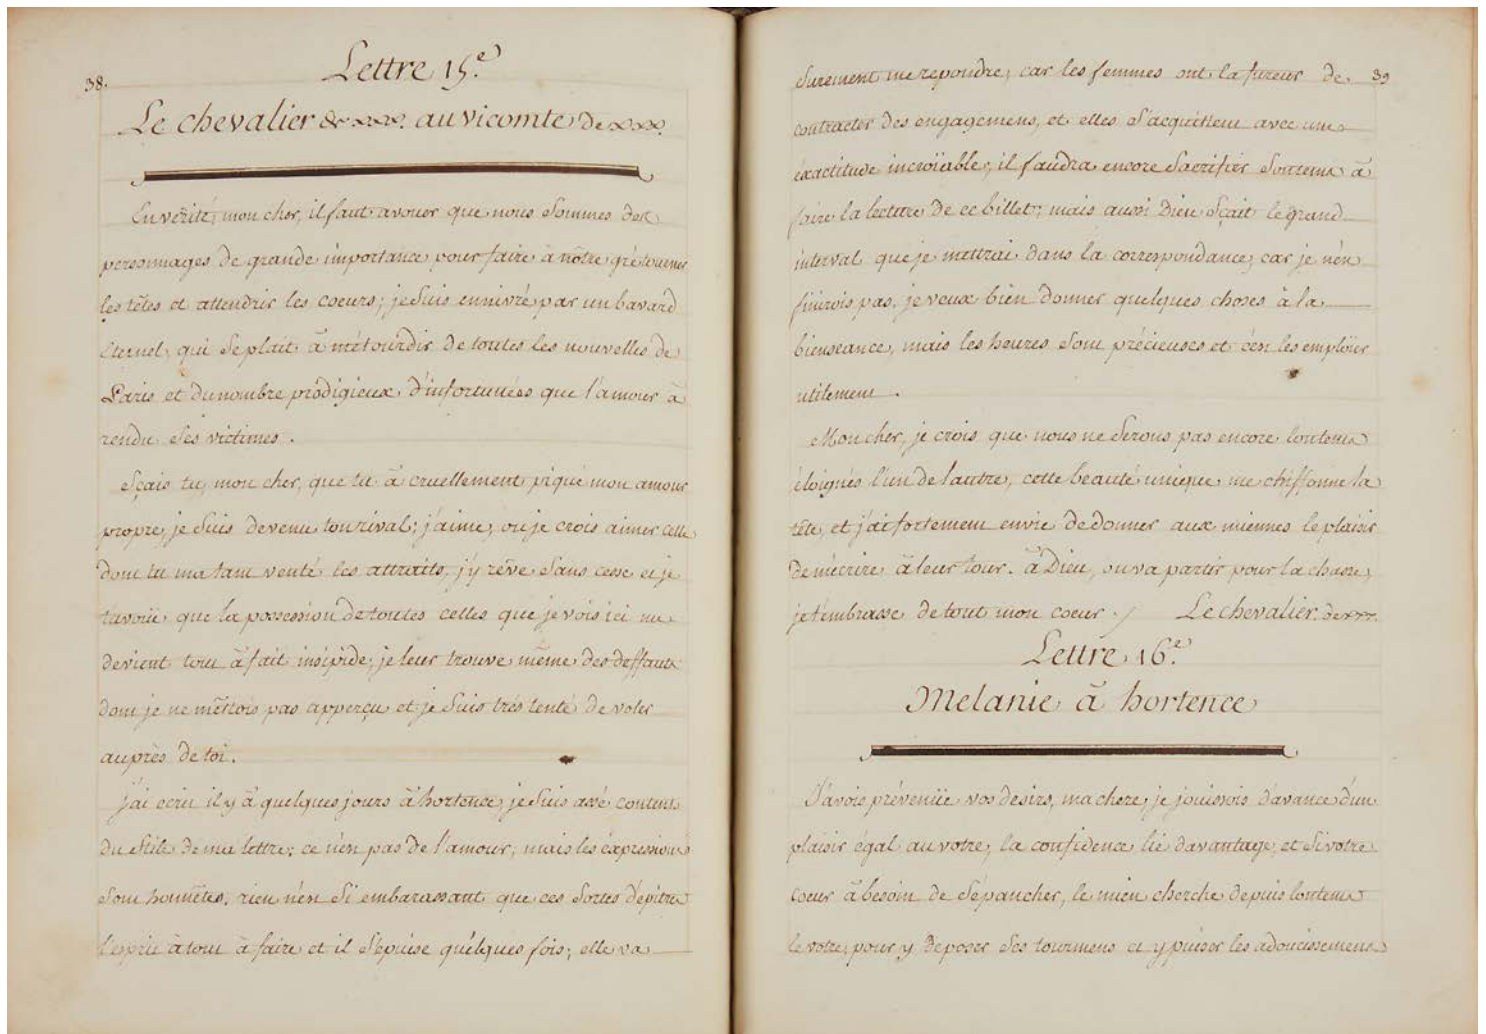 38.
Lettre 15.e
Le chevalier de xxx. au vicomte de xxx.
En vérité, mon cher, il faut avouer que nous sommes des
personnages de grande importance pour faire à nôtre gré tourner
les têtes et attendrir les coeurs; je suis ennivré par un bavard
éternel, qui se plait à m'étourdir de toutes les nouvelles de
Paris et du nombre prodigieux d'infortunées que l'amour à
rendu ses victimes.
Sçais tu, mon cher, que tu à cruellement piqué mon amour
propre, je suis devenu ton rival; j'aime, ou je crois aimer celle
dont tu ma tant venté les attraits, j'y rêve sans cesse et je
t'avoüe que la possession de toutes celles que je vois ici me
devient tout à fait insipide, je leur trouve même des deffauts
dont je ne m'êtois pas apperçu et je suis très tenté de voler
auprès de toi.
j'ai ecrit il y à quelques jours à hortence, je suis assé content
du stile de ma lettre; ce n'en pas de l'amour; mais les éxpressions
sont honnêtes, rien n'en si embarassant que ces sortes d'épitre
l'esprit à tout à faire et il s'épuise quélques fois; elle va
39
surement me repondre, car les femmes ont la fureur de
contracter des engagemens, et elles s'acquittent avec une
éxactitude incroïable, il faudra encore sacrifier son tems à
faire la lecture de ce billet; mais aussi Dieu sçait le grand
interval que je mettrai dans la correspondance, car je n'en
finirois pas, je veux bien donner quelques choses à la
bienseance, mais les heures sont précieuses et c'en les emploïer
utilement.
Mon cher, je crois que nous ne serons pas encore lontems
éloignés l'un de l'autre, cette beauté unique me chiffonne la
tête, et j'ai fortement envie de donner aux miennes le plaisir
de m'écrire à leur tour. à Dieu, on va partir pour la chasse,
je t'embrasse de tout mon coeur. / Le chevalier de xxx.
Lettre 16.e
Melanie à hortence
J'avois prévenüe vos desirs, ma chere, je joüissois d'avance d'un
plaisir égal au votre, la confidence lie davantage, et si votre
coeur à besoin de s'épancher, le mien cherche depuis lontems
le votre, pour y deposer ses tourmens et y puiser les adoucissemens